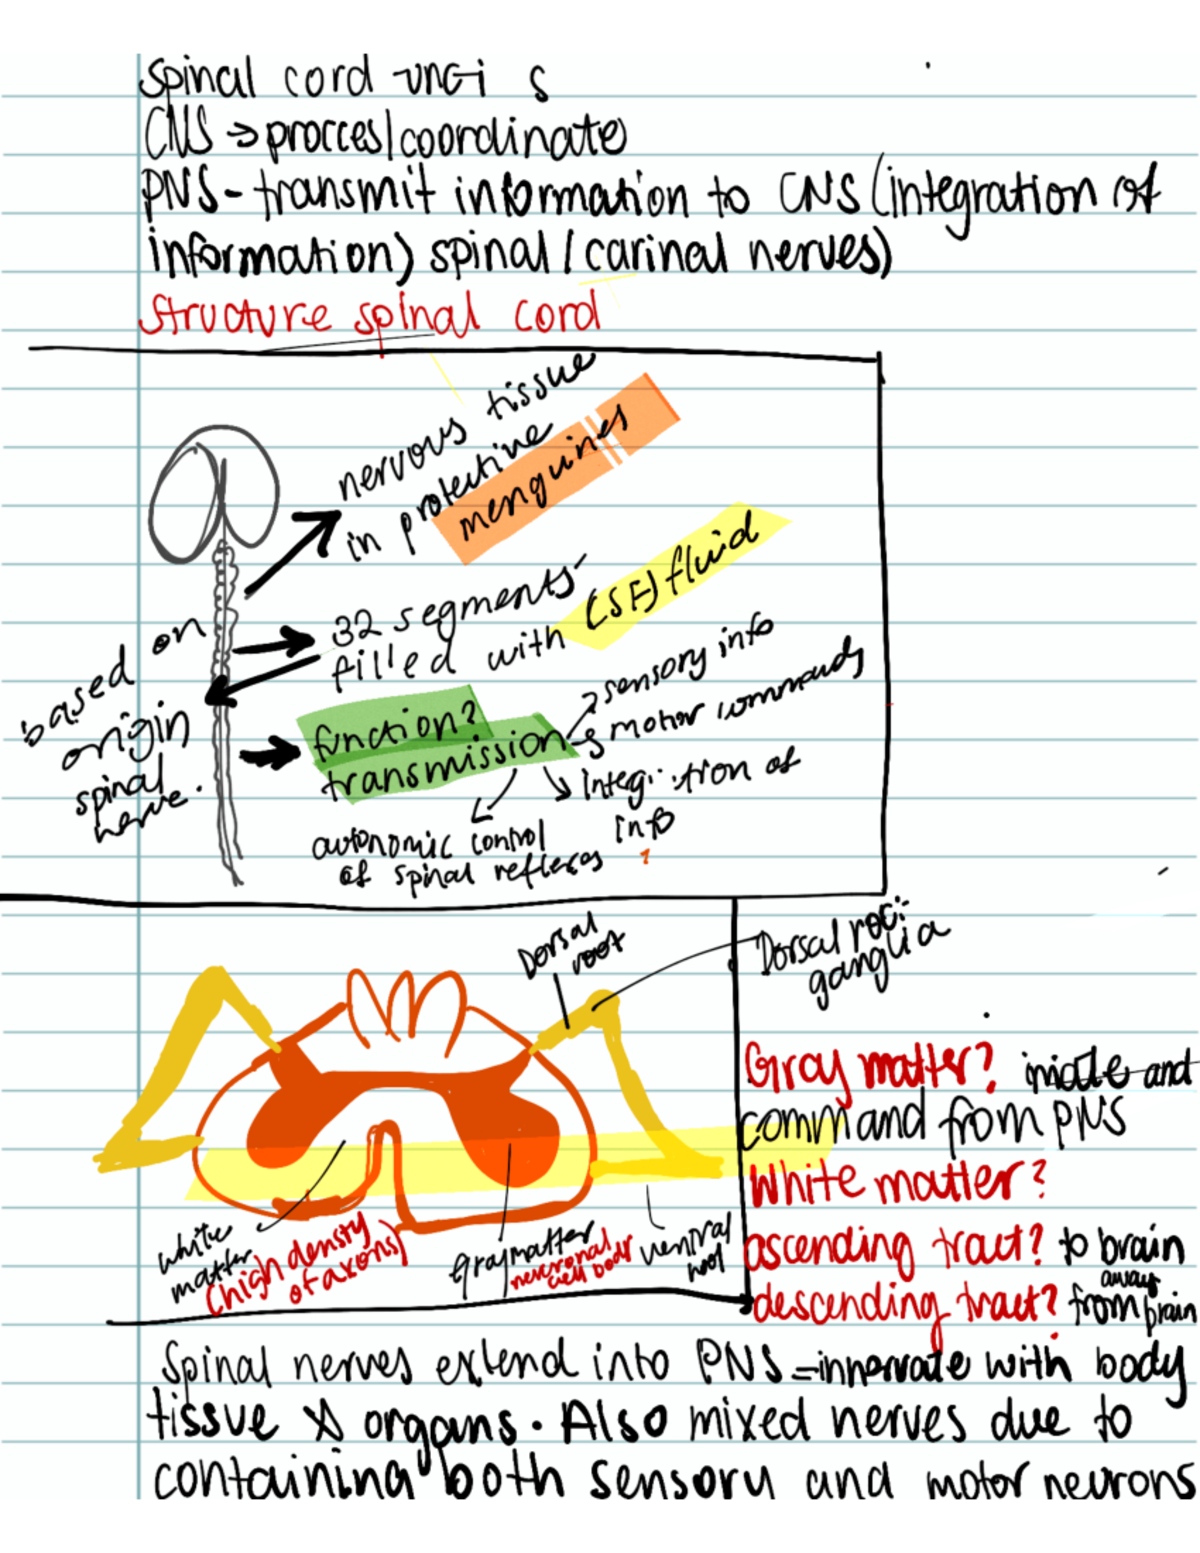 spinal cord
CNS → procces/coordinate
PNS - transmit information to CNS (integration of
information) spinal / carinal nerves)
Structure spinal cord
nervous tissue
in protective
menguines
32 segments-
filled with (SF) fluid
based on
origin
spinal
nerve.
function?
transmission
sensory info
motor commands
integration of
info
autonomic control
of spinal reflexes
Dorsal
root
Dorsal root
ganglia
Gray matter? and
command from PNS
White matter?
ascending tract? to brain
descending tract? from away brain
white
matter
(high density
of axons)
graymatter
neuronal
cell body
ventral
root
Spinal nerves extend into PNS = innervate with body
tissue & organs. Also mixed nerves due to
containing both sensory and motor neurons